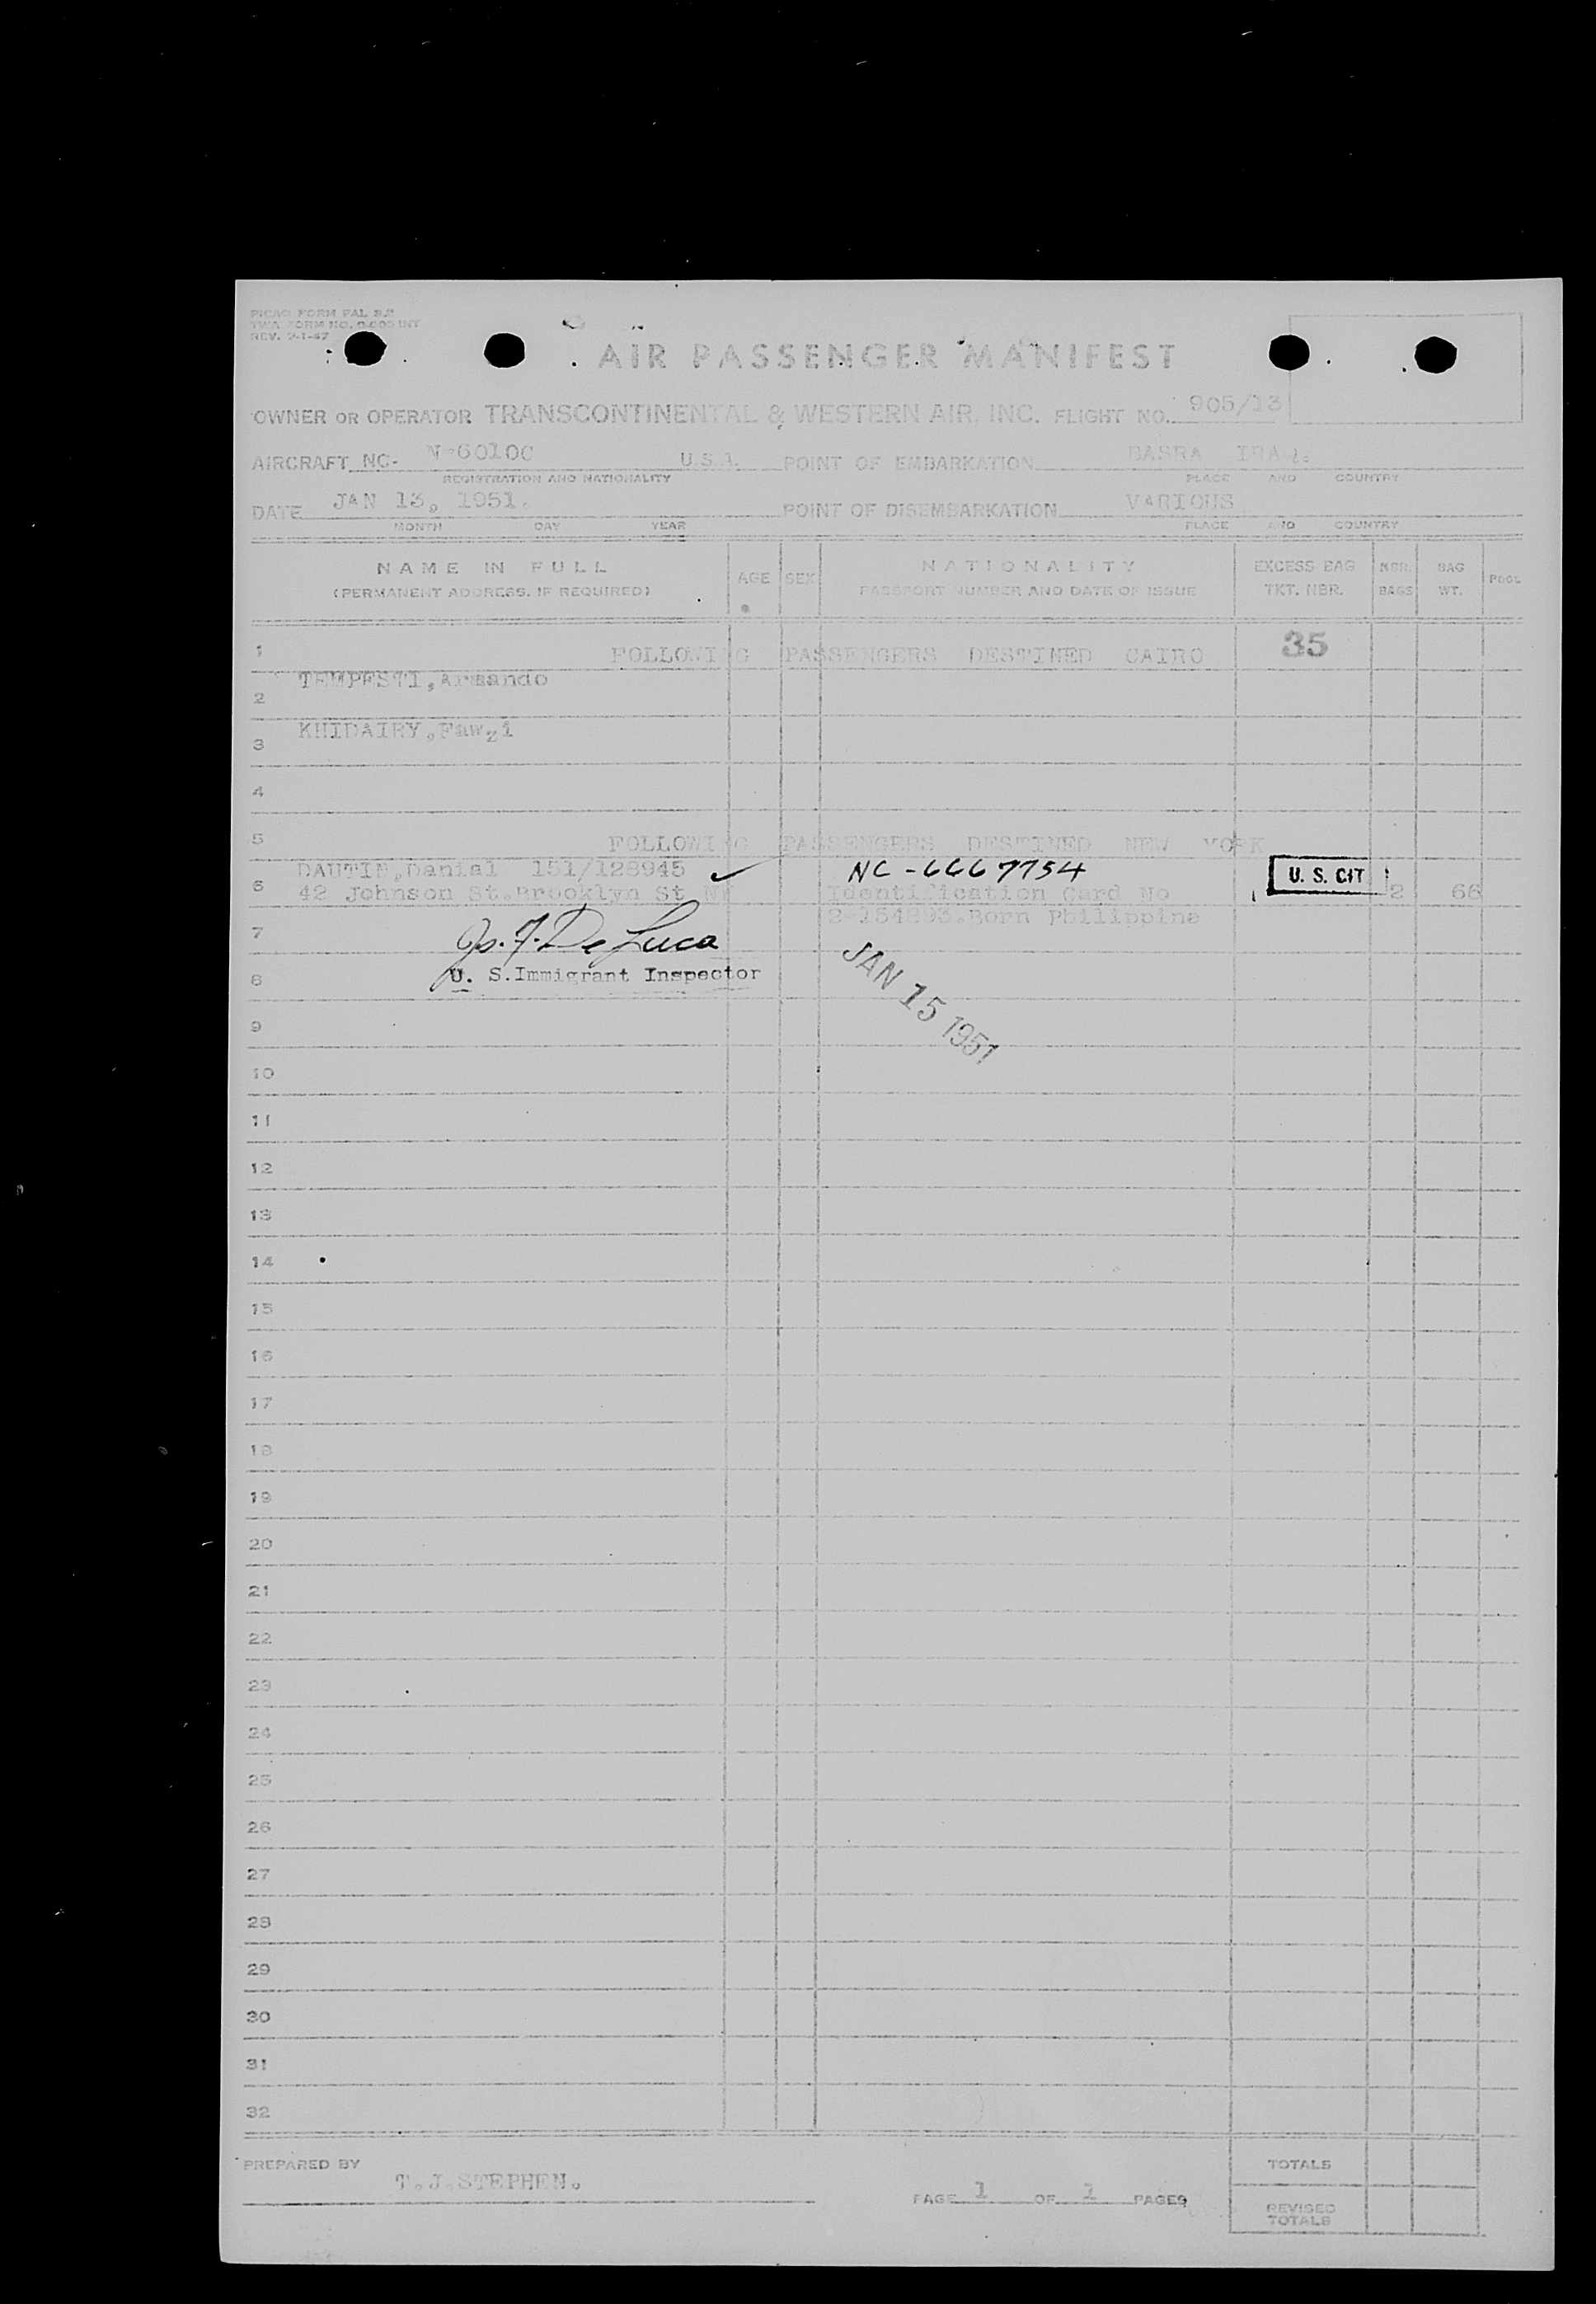 PICAO FORM PAL 2.2
TWA FORM NO. INT
REV. 2-1-47
AIR PASSENGER MANIFEST
OWNER OR OPERATOR TRANSCONTINENTAL & WESTERN AIR, INC. FLIGHT NO. 905/13
AIRCRAFT NC- N-6010C U.S.A. POINT OF EMBARKATION BASRA IRAQ.
REGISTRATION AND NATIONALITY PLACE AND COUNTRY
DATE JAN 13, 1951. POINT OF DISEMBARKATION VARIOUS
MONTH DAY YEAR PLACE AND COUNTRY
NAME IN FULL
(PERMANENT ADDRESS, IF REQUIRED)
AGE
SEX
NATIONALITY
PASSPORT NUMBER AND DATE OF ISSUE
EXCESS BAG
TKT. NBR.
NBR.
BAGS
BAG
WT.
POOL
1 FOLLOWING PASSENGERS DESTINED CAIRO 35
TEMPESTI,Armando
2
KHIDAIRY,Fawzi
3
4
5 FOLLOWING PASSENGERS DESTINED NEW YORK
DAUTIN,Danial 151/128945 ✓ NC-6667754 U. S. CIT
6 42 Johnson St.Brooklyn St NY Identification Card No 2 66
7 2-154893.Born Philippine
Jo. F. De Luca
8 U. S.Immigrant Inspector
JAN 15 1951
9
10
11
12
13
14
15
16
17
18
19
20
21
22
23
24
25
26
27
28
29
30
31
32
PREPARED BY T.J.STEPHEN.
PAGE 1 OF 1 PAGES
TOTALS
REVISED
TOTALS